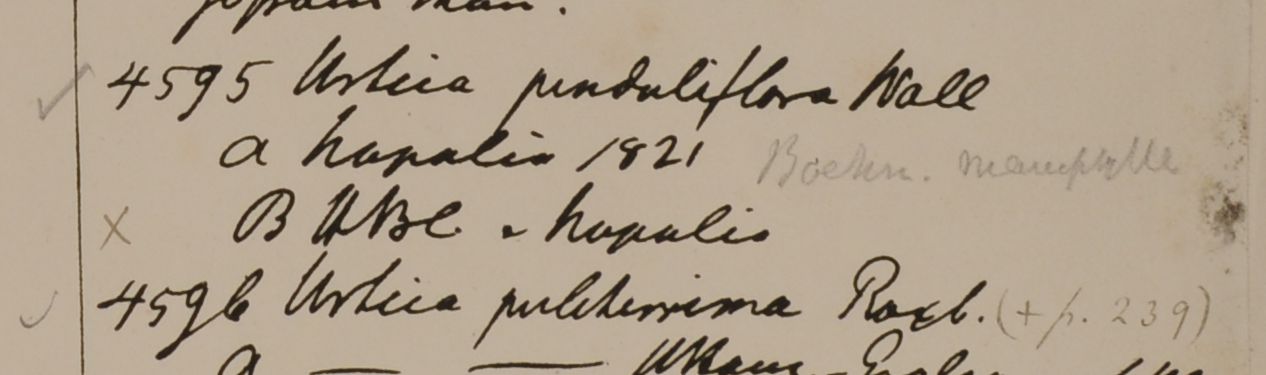 4595 Urtica penduliflora Wall
a Napalia 1821 Boehm. macrophylla
X B HBC e Napalia
4596 Urtica pulcherrima Roxb. (+ p. 239)
a — —